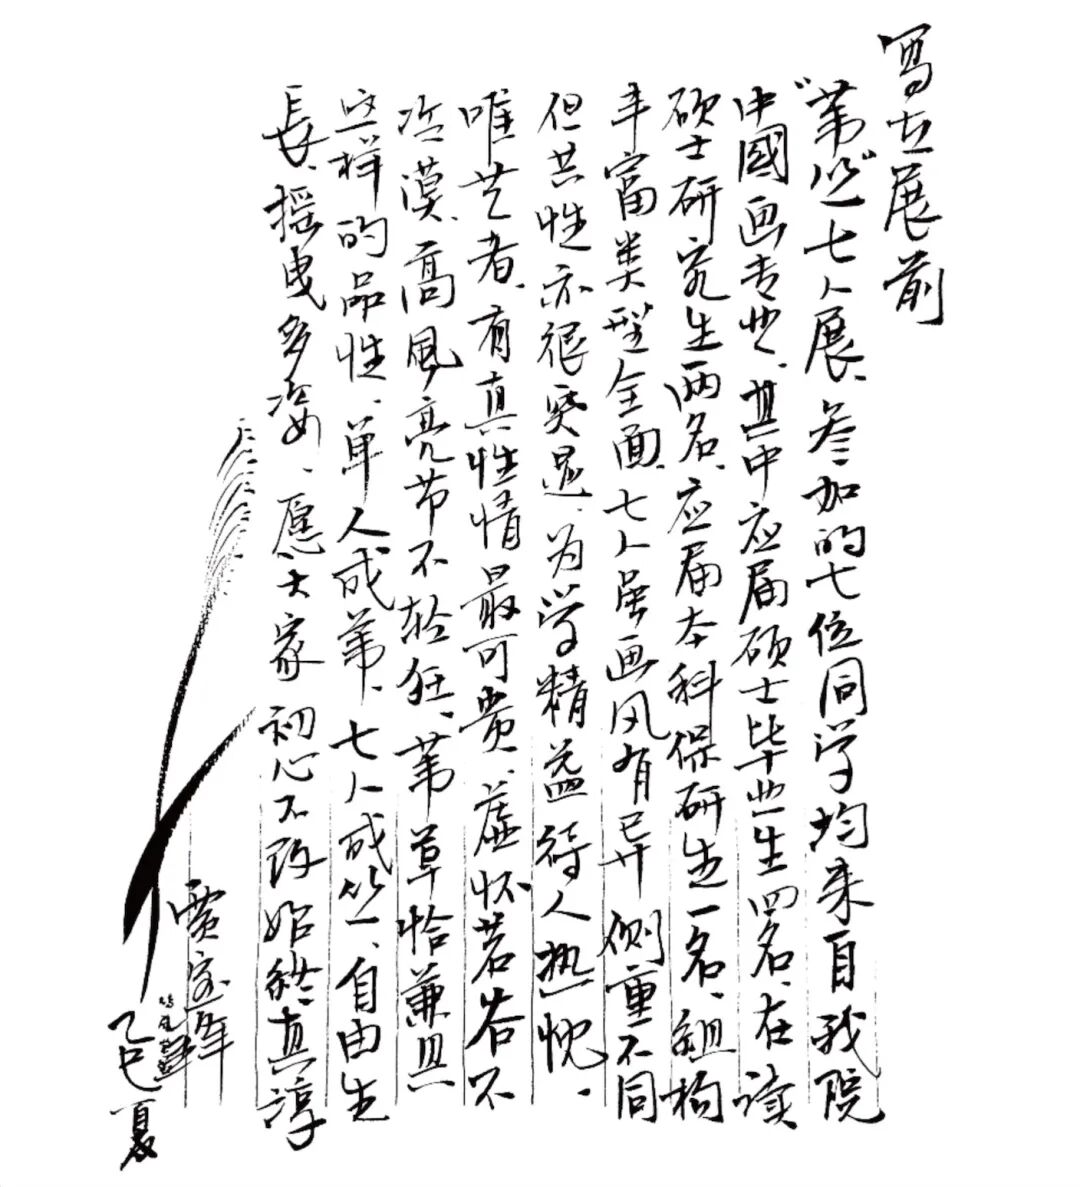 写在展前
"苇丛"七人展、参加的七位同学均来自我院
中國画专业、其中应届硕士毕业生四名、在读
硕士研究生两名、应届本科保研生一名、组构
丰富类型全面、七人虽画风有异侧重不同
但共性亦很突显、为学精益待人热忱、
唯艺者、有真性情最可贵、虚怀若谷不
冷漠、高風亮节不轻狂、苇草恰兼具
这样的品性、单人成苇、七人成丛、自由生
長、摇曳多姿、愿大家初心不改始终真淳
乙巳夏